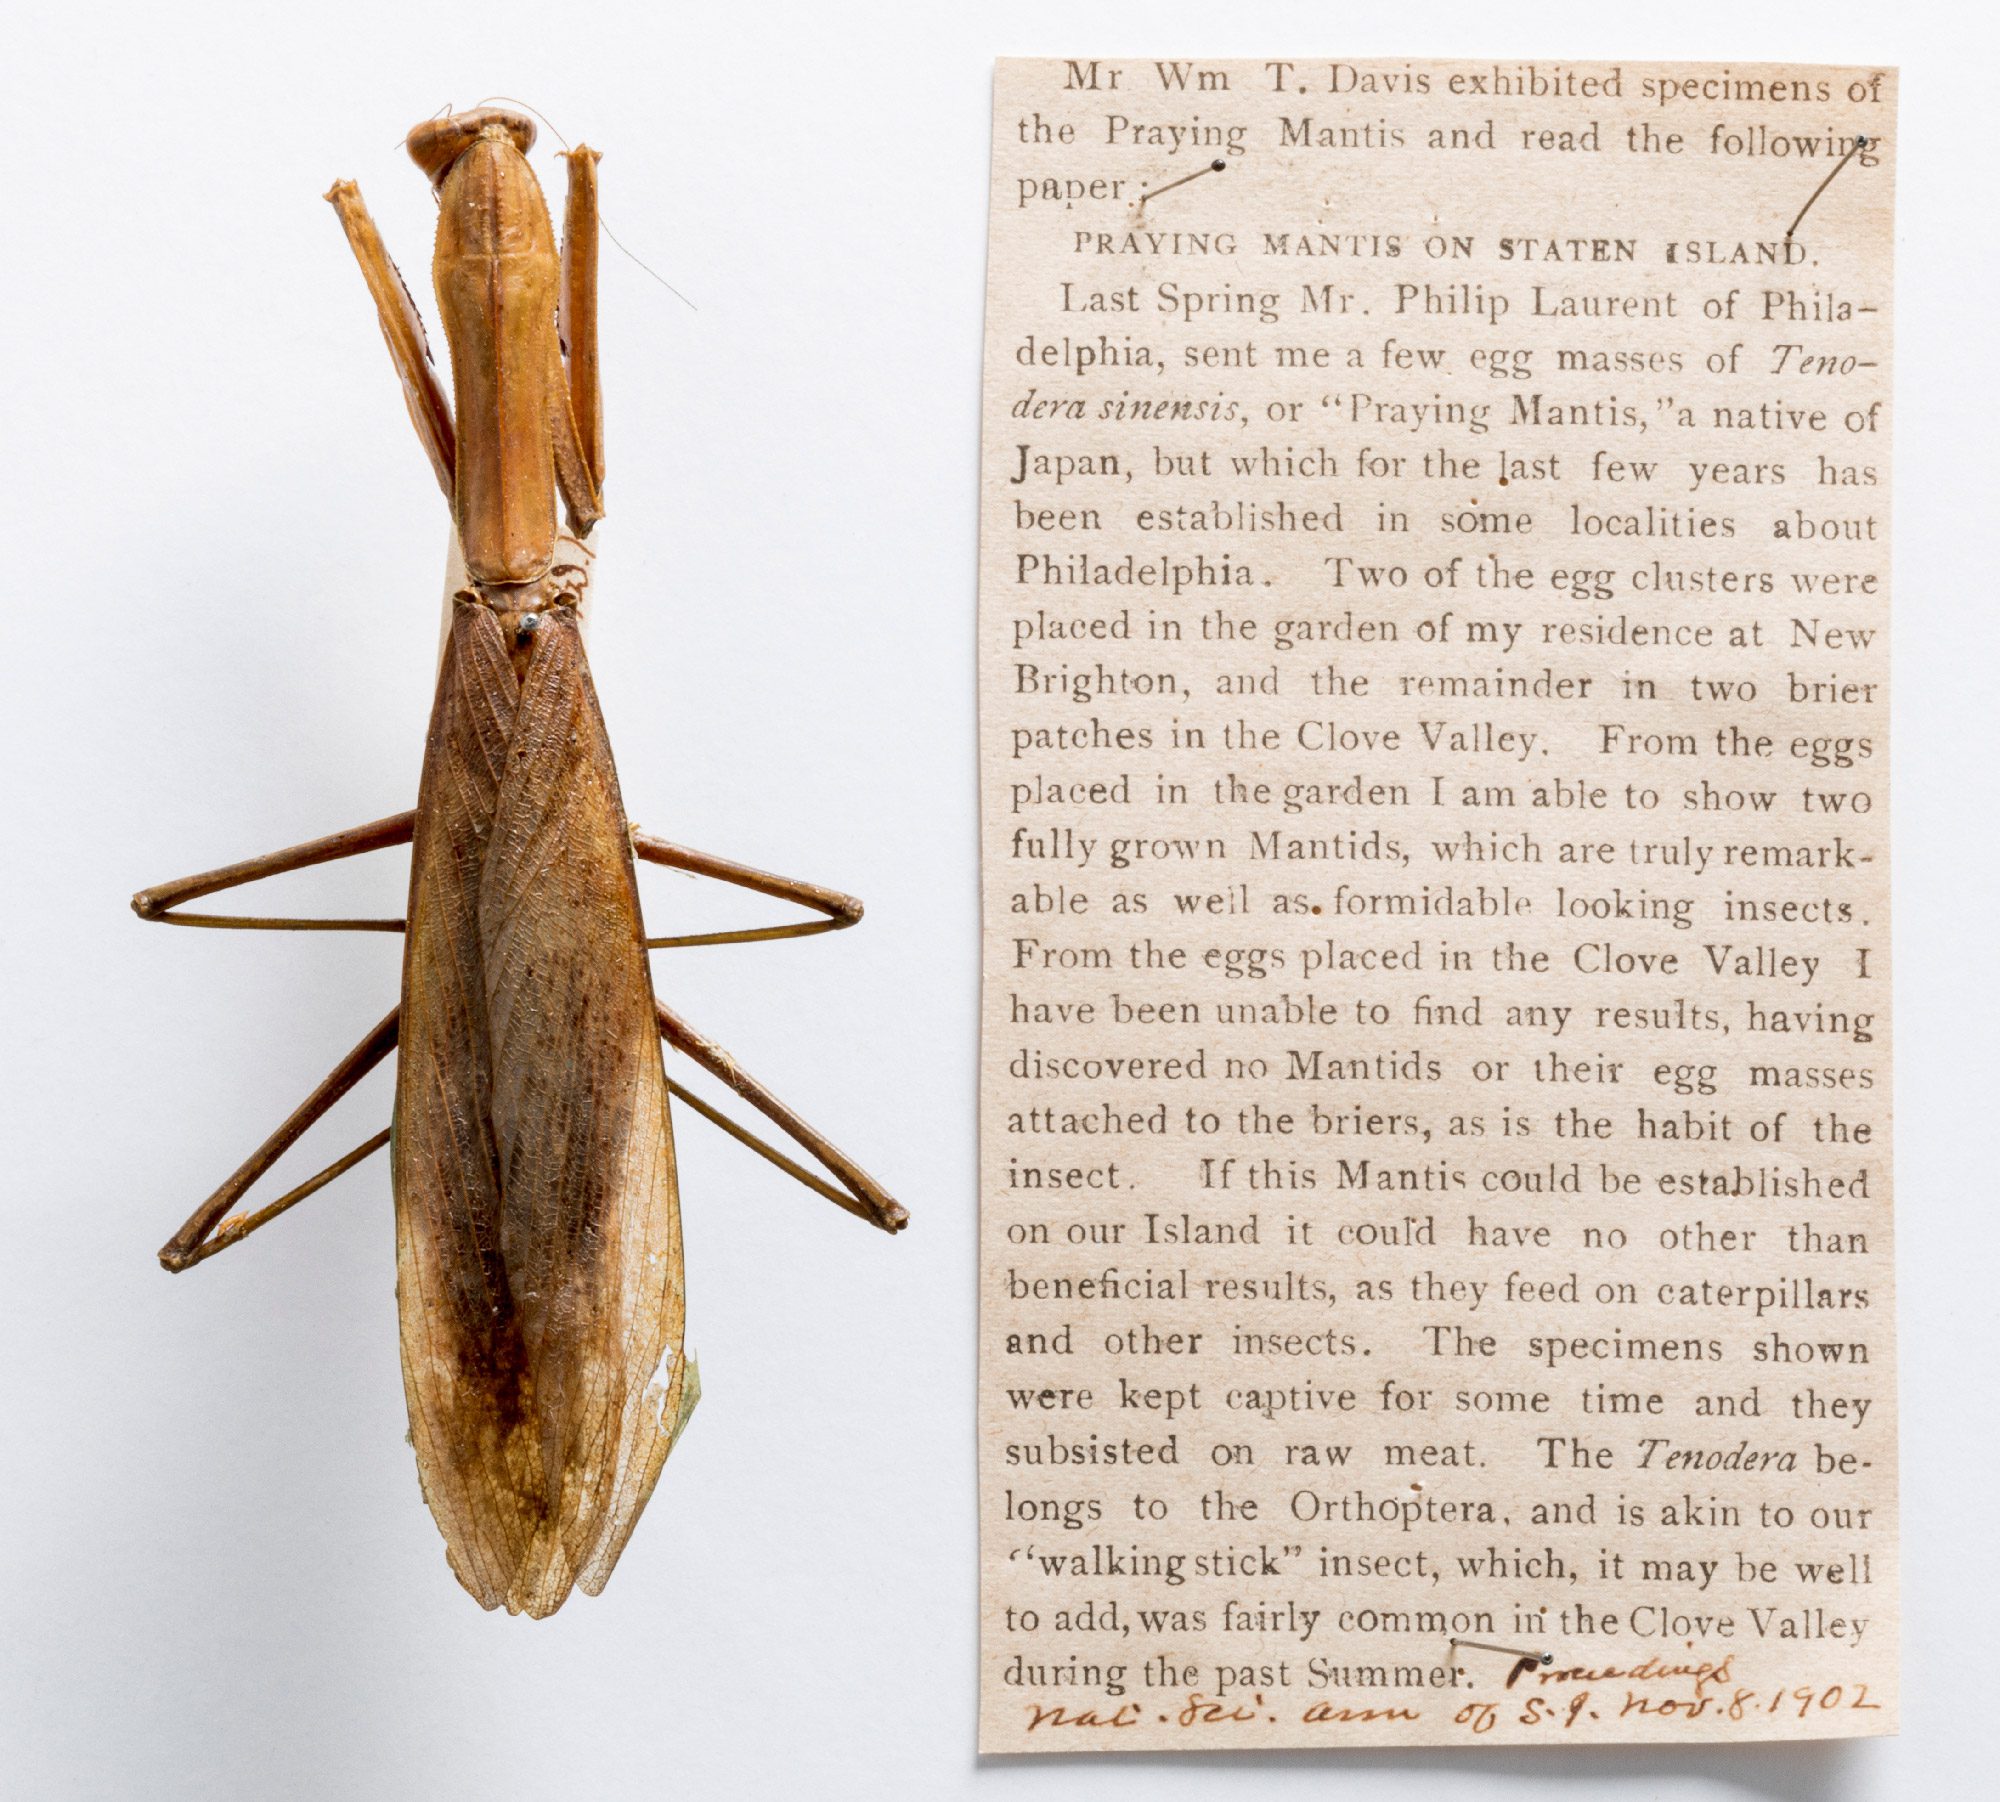 Mr Wm T. Davis exhibited specimens of
the Praying Mantis and read the following
paper:
PRAYING MANTIS ON STATEN ISLAND.
Last Spring Mr. Philip Laurent of Phila-
delphia, sent me a few egg masses of Teno-
dera sinensis, or “Praying Mantis,” a native of
Japan, but which for the last few years has
been established in some localities about
Philadelphia. Two of the egg clusters were
placed in the garden of my residence at New
Brighton, and the remainder in two brier
patches in the Clove Valley. From the eggs
placed in the garden I am able to show two
fully grown Mantids, which are truly remark-
able as well as formidable looking insects.
From the eggs placed in the Clove Valley I
have been unable to find any results, having
discovered no Mantids or their egg masses
attached to the briers, as is the habit of the
insect. If this Mantis could be established
on our Island it could have no other than
beneficial results, as they feed on caterpillars
and other insects. The specimens shown
were kept captive for some time and they
subsisted on raw meat. The Tenodera be-
longs to the Orthoptera, and is akin to our
“walking stick” insect, which, it may be well
to add, was fairly common in the Clove Valley
during the past Summer. Proceedings
Nat. Sci. assn of S.I. Nov. 8. 1902